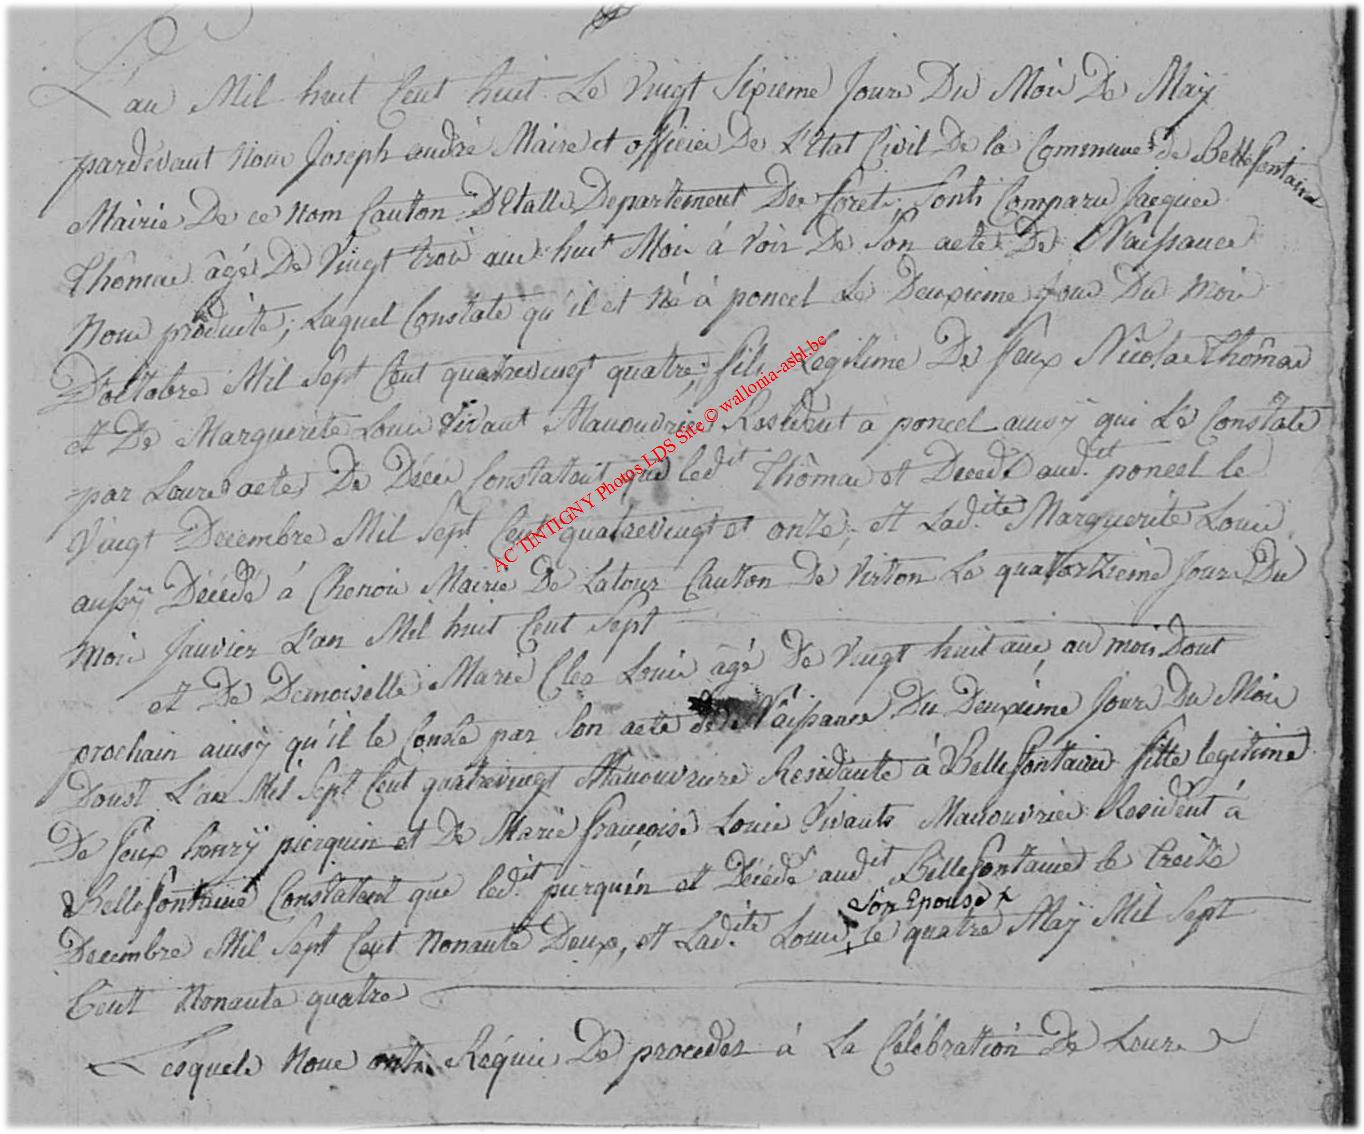 L'an Mil huit Cent huit Le Vingt Sixieme Jour Du Moi De Maÿ
pardevant Nous Joseph andré Maire et officier De L'Etat Civil De la Commune de Bellefontaine
Mairie De ce Nom Canton D'Etalle Departement Des Foret. Sonts Comparu Jacques
Thômas âgé De Vingt trois ans huit Mois à Voir De Son acte De Naissance
Nous produite; Laquel Constate qu'il et Né à poncel Le Deuxieme Jour Du Mois
D'octobre Mil Sept Cent quatrevingt quatre; fils Legitime De feux Nicolas Thômas
et De Marguerite Louis Vivant Manouvrier Resident à poncel aussÿ qui Le Constate
par Leurs actes De Décé Constatant que ledit Thômas et Decedé audit poncel le
Vingt Decembre Mil Sept Cent quatrevingt et onze, et Ladite Marguerite Louis
aussÿ Décédé à Chenois Mairie De Latour Canton De Virton Le quatorzième Jour Du
Mois Janvier L'an Mil huit Cent Sept
et De Demoiselle Marie Louis âgé De Vingt huit ans au mois Dout
prochain aussÿ qu'il le Conste par Son acte de Naissance Du Deuxième Jour Du Mois
Doust L'an Mil Sept Cent quatrevingt Manouvriere Residante à Bellefontaine fille legitime
De feux henrÿ pierquin et De Marie françoise Louis Vivants Manouvrier Resident à
Bellefontaine Constatant que ledit pierquin et Décédé audit Bellefontaine le treize
Son Epouse
Decembre Mil Sept Cent Nonante Deux, et Ladite Louis, le quatre Maÿ Mil Sept
Cent Nonante quatre
Lesquels Nous onts Réquis De proceder à La Célébration De Leurs
AC TINTIGNY Photos LDS Site © wallonia-asbl.be